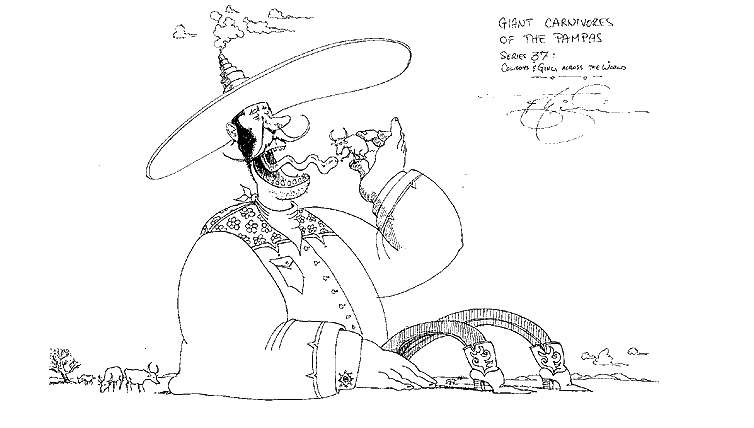 GIANT CARNIVORES
OF THE PAMPAS
SERIES 37:
COWBOYS & GIRLS ACROSS THE WORLD